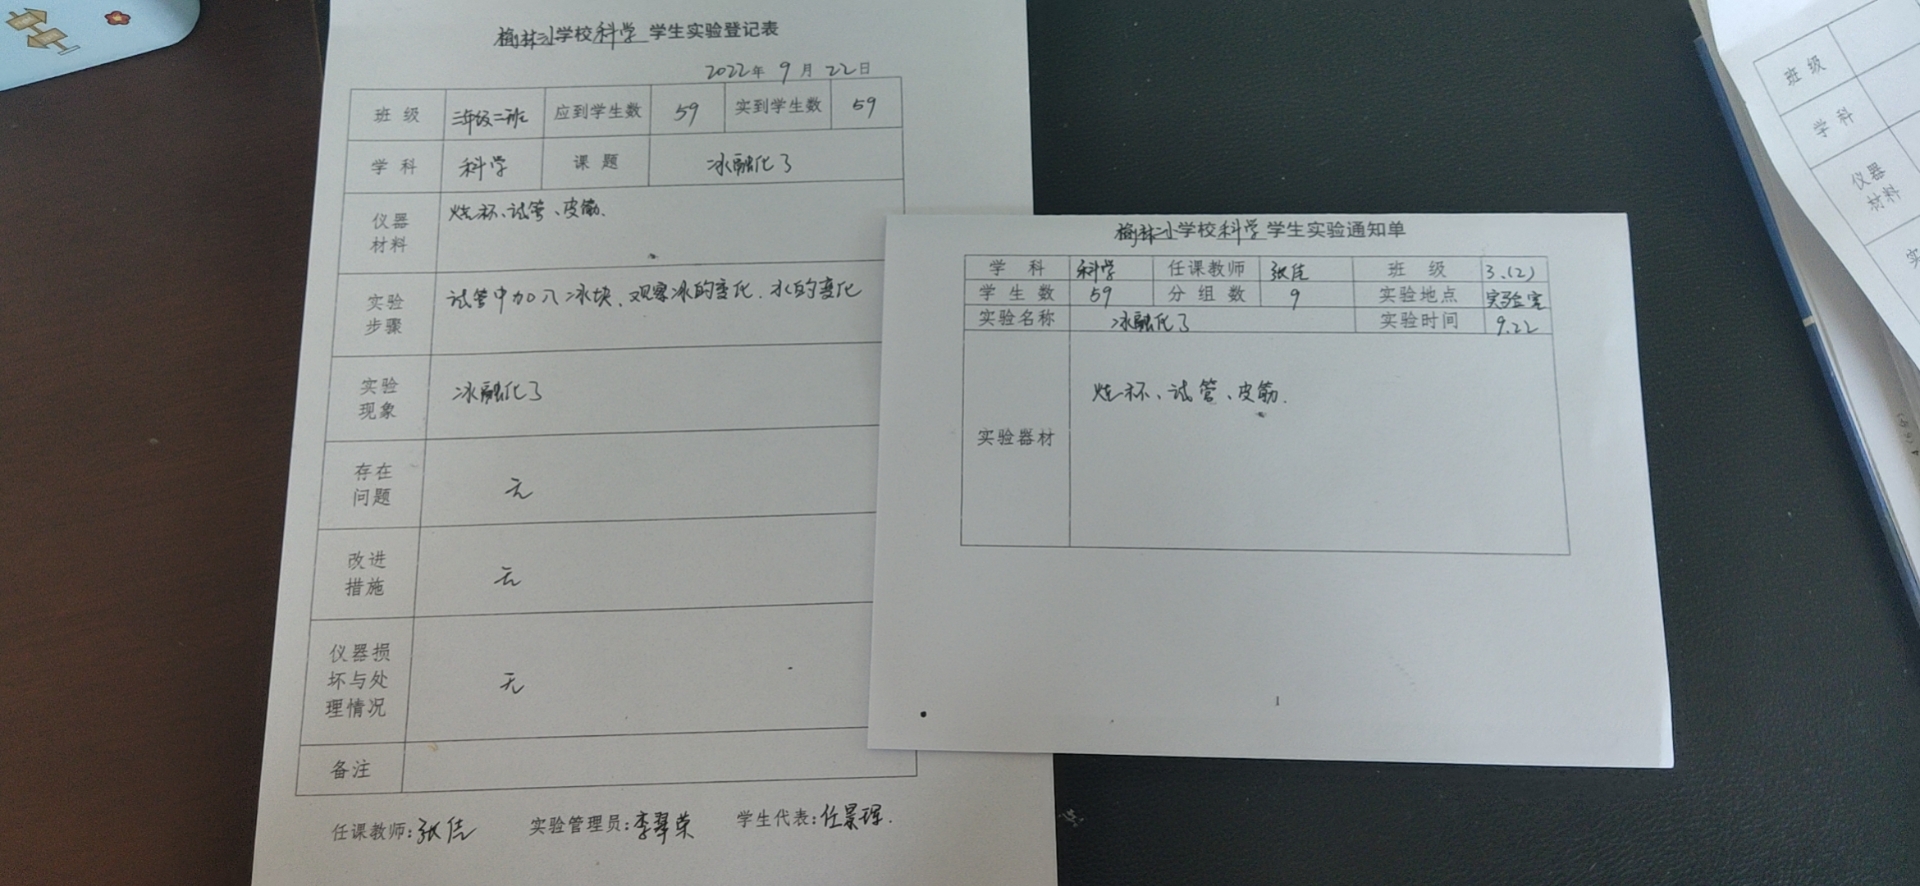 榆林小学校科学 学生实验登记表
2022年 9 月 22 日
班 级 三年级二班 应到学生数 59 实到学生数 59
学 科 科学 课 题 冰融化了
仪器 烧杯、试管、皮筋.
材料
实验 试管中加入冰块、观察冰的变化.水的变化
步骤
实验 冰融化了
现象
存在
问题 无
改进
措施 无
仪器损
坏与处 无
理情况
备注
任课教师:张佳 实验管理员:李翠荣 学生代表:任景珲.
榆林小学校科学学生实验通知单
学 科 科学 任课教师 张佳 班 级 3.(2)
学 生 数 59 分 组 数 9 实验地点 实验室
实验名称 冰融化了 实验时间 9.22
实验器材 烧杯、试管、皮筋.
1
班 级
学 科
仪器
材料
实